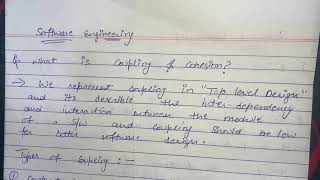 Software Engineering
Q what is Coupling & Cohesion?
→ We represent coupling in "Top level Design"
and its describle the inter-dependency
and interaction between the module
of a S/W and coupling should be low
for better software design.
Types of Coupling :-
①